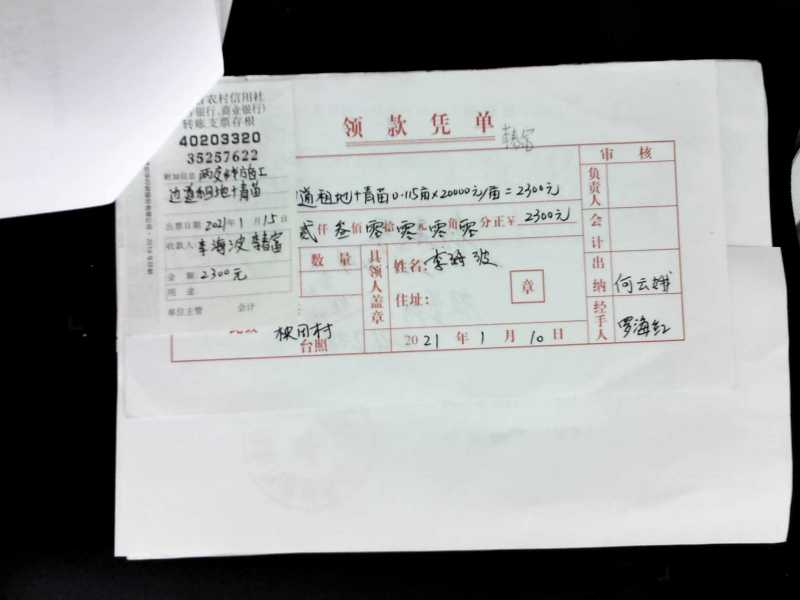 农村信用社
银行、商业银行)
转账支票存根
40203320
35257622
附加信息
边道租地+青苗
出票日期 2021年1月15日
收款人 李海波
金额 2300元
用途
单位主管 会计
领款凭单
道租地+青苗0.115亩×20000元/亩=2300元
贰仟叁佰零拾零元零角零分正¥2300元
数量
具领人盖章
姓名:李海波
住址:
章
村
台照
2021年1月10日
审核
负责人
会计
出纳 何云娥
经手人 罗海红